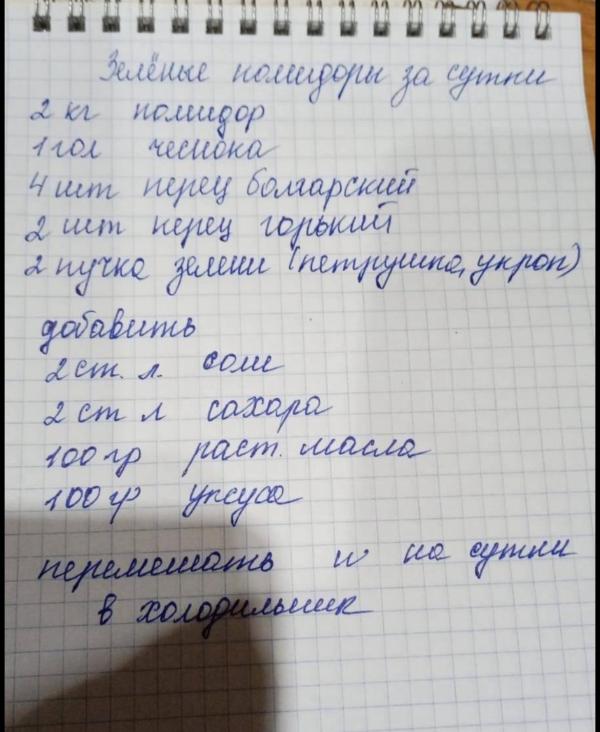 Зелёные помидоры за сутки
2 кг помидор
1 гол чеснока
4 шт перец болгарский
2 шт перец горький
2 пучка зелени (петрушка, укроп)
добавить
2 ст. л. соли
2 ст л сахара
100 гр раст. масла
100 гр уксуса
перемешать и на сутки
в холодильник